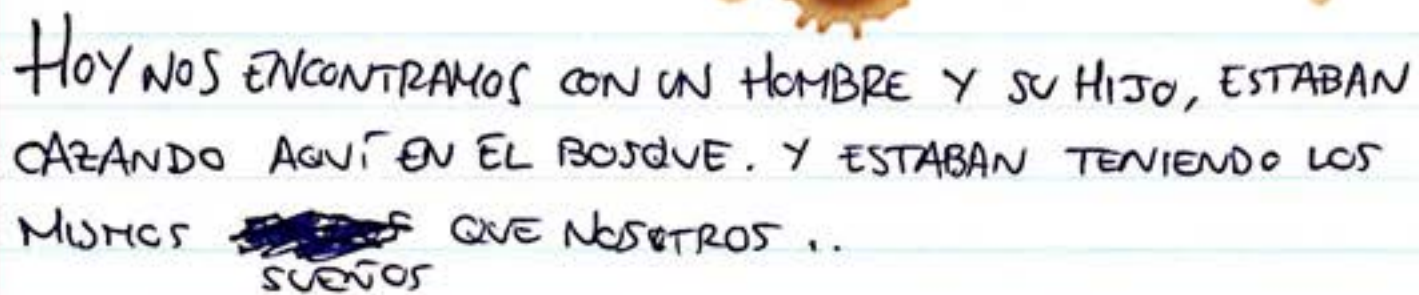 HOY NOS ENCONTRAMOS CON UN HOMBRE Y SU HIJO, ESTABAN
CAZANDO AQUÍ EN EL BOSQUE. Y ESTABAN TENIENDO LOS
MISMOS QUE NOSOTROS ..
SUEÑOS